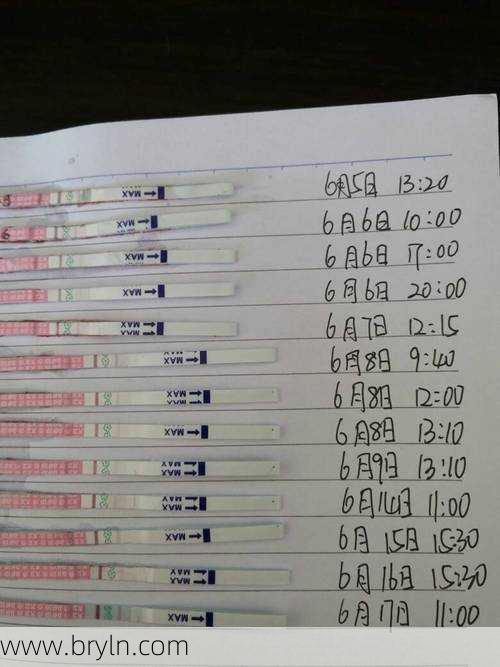 MAX 6月5日 13:20
MAX 6月6日 10:00
MAX 6月6日 17:00
MAX 6月6日 20:00
MAX 6月7日 12:15
MAX 6月8日 9:40
MAX 6月8日 12:00
MAX 6月8日 13:10
MAX 6月9日 13:10
MAX 6月14日 11:00
MAX 6月15日 15:30
MAX 6月16日 15:30
MAX 6月17日 11:00
www.bryln.com